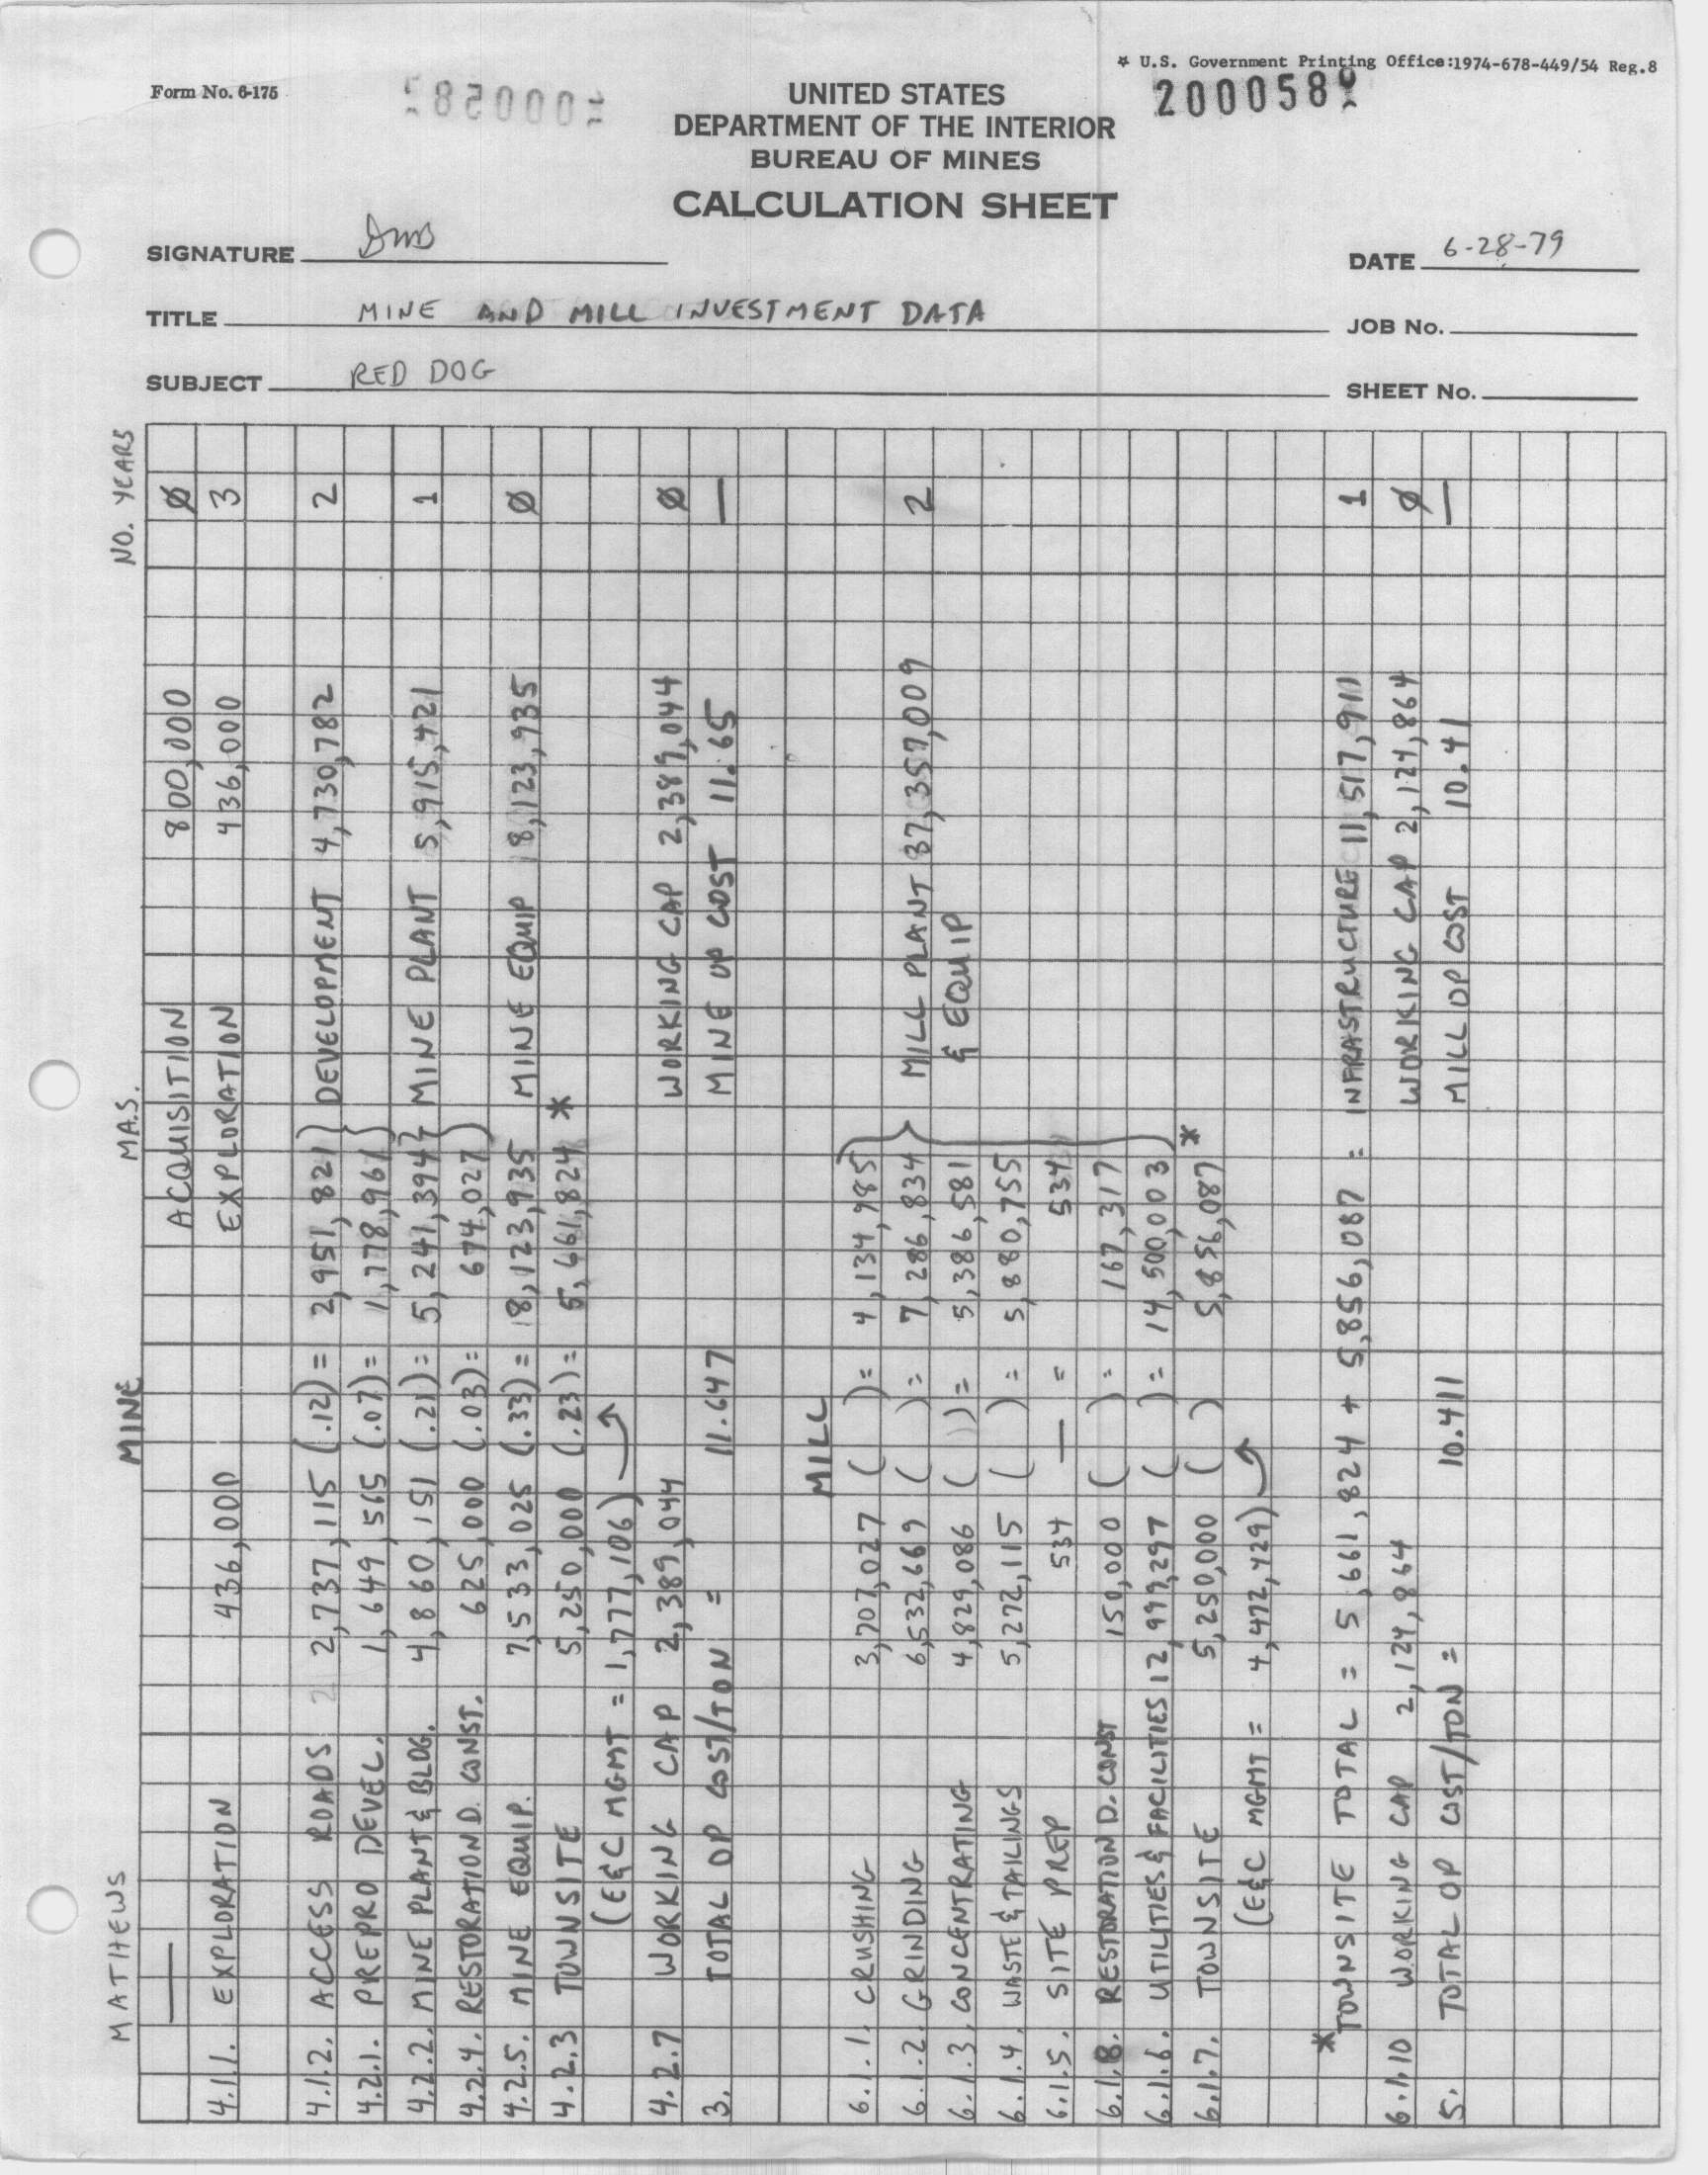 * U.S. Government Printing Office:1974-678-449/54 Reg.8
Form No. 6-175
UNITED STATES
DEPARTMENT OF THE INTERIOR
BUREAU OF MINES
CALCULATION SHEET
SIGNATURE
DATE 6-28-79
TITLE MINE AND MILL INVESTMENT DATA
JOB No.
SUBJECT RED DOG
SHEET No.
MATHEWS MINE M.A.S. NO. YEARS
— ACQUISITION 800,000 Ø
4.1.1. EXPLORATION 436,000 EXPLORATION 436,000 3
4.1.2. ACCESS ROADS 2,737,115 (.12) = 2,951,821 } DEVELOPMENT 4,730,782 2
4.2.1. PREPRO DEVEL. 1,649,565 (.07) = 1,778,961
4.2.2. MINE PLANT & BLDG. 4,860,151 (.21) = 5,241,394 } MINE PLANT 5,915,421 1
4.2.4. RESTORATION D. CONST. 625,000 (.03) = 674,027
4.2.5. MINE EQUIP. 7,533,025 (.33) = 18,123,935 MINE EQUIP 18,123,935 Ø
4.2.3 TOWNSITE 5,250,000 (.23) = 5,661,824 *
(E&C MGMT = 1,777,106)
4.2.7 WORKING CAP 2,389,044 WORKING CAP 2,389,044 Ø
3. TOTAL OP COST/TON = 11.647 MINE OP COST 11.65 —
MILL
6.1.1. CRUSHING 3,707,027 ( ) = 4,134,985
6.1.2. GRINDING 6,532,669 ( ) = 7,286,834 } MILL PLANT 37,357,009 2
6.1.3. CONCENTRATING 4,829,086 ( ) = 5,386,581 & EQUIP
6.1.4. WASTE & TAILINGS 5,272,115 ( ) = 5,880,755
6.1.5. SITE PREP 534 — = 534
6.1.8. RESTORATION D. CONST 150,000 ( ) = 167,317
6.1.6. UTILITIES & FACILITIES 12,999,297 ( ) = 14,500,003
6.1.7. TOWNSITE 5,250,000 ( ) 5,856,087 *
(E&C MGMT = 4,472,429)
* TOWNSITE TOTAL = 5,661,824 + 5,856,087 = INFRASTRUCTURE 11,517,911 1
6.1.10 WORKING CAP 2,124,864 WORKING CAP 2,124,864 Ø
5. TOTAL OP COST/TON = 10.411 MILL OP COST 10.41 —